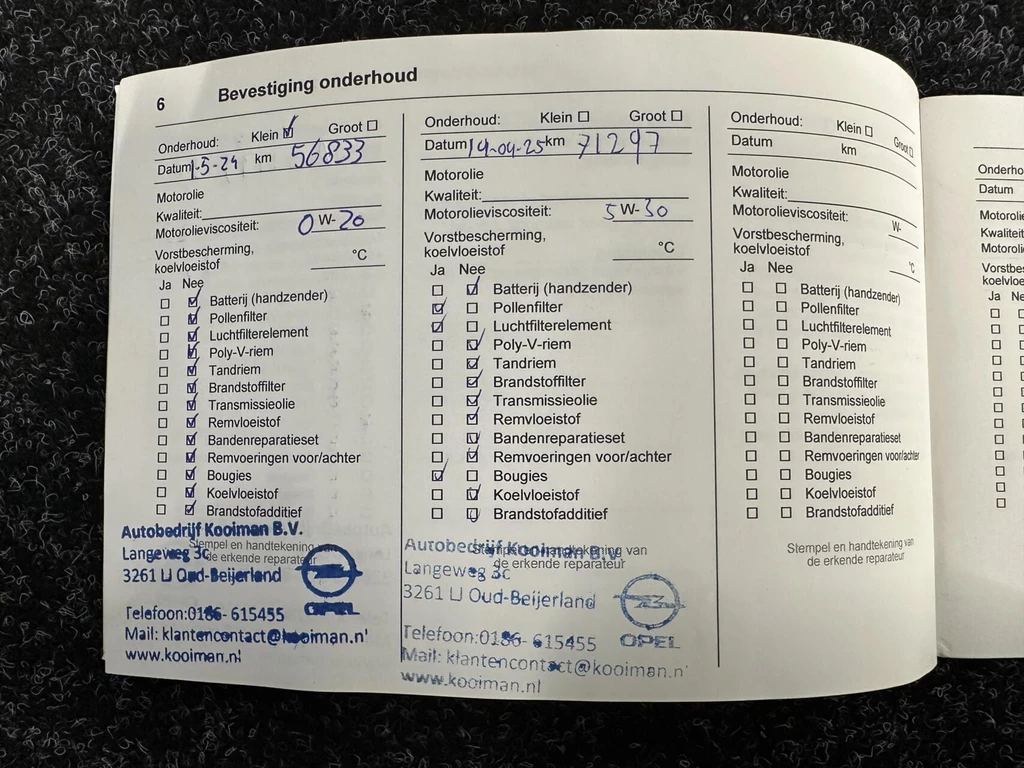 6 Bevestiging onderhoud
Onderhoud: Klein ☑ Groot ☐
Datum 1-5-24 km 56833
Motorolie
Kwaliteit:
Motorolieviscositeit: 0W-20
Vorstbescherming,
koelvloeistof °C
Ja Nee
☐ ☑ Batterij (handzender)
☐ ☑ Pollenfilter
☐ ☑ Luchtfilterelement
☐ ☑ Poly-V-riem
☐ ☑ Tandriem
☐ ☑ Brandstoffilter
☐ ☑ Transmissieolie
☐ ☑ Remvloeistof
☐ ☑ Bandenreparatieset
☐ ☑ Remvoeringen voor/achter
☐ ☑ Bougies
☐ ☑ Koelvloeistof
☐ ☑ Brandstofadditief
Stempel en handtekening van
de erkende reparateur
Autobedrijf Kooiman B.V.
Langeweg 3c
3261 LJ Oud-Beijerland
OPEL
Telefoon:0186-615455
Mail: klantencontact@kooiman.n
www.kooiman.nl
Onderhoud: Klein ☐ Groot ☐
Datum 14-04-25 km 71297
Motorolie
Kwaliteit:
Motorolieviscositeit: 5W-30
Vorstbescherming,
koelvloeistof °C
Ja Nee
☐ ☑ Batterij (handzender)
☑ ☐ Pollenfilter
☑ ☐ Luchtfilterelement
☐ ☑ Poly-V-riem
☐ ☑ Tandriem
☐ ☑ Brandstoffilter
☐ ☑ Transmissieolie
☐ ☑ Remvloeistof
☐ ☑ Bandenreparatieset
☐ ☑ Remvoeringen voor/achter
☑ ☐ Bougies
☐ ☑ Koelvloeistof
☐ ☑ Brandstofadditief
Stempel en handtekening van
de erkende reparateur
Autobedrijf Kooiman B.V.
Langeweg 3c
3261 LJ Oud-Beijerland
OPEL
Telefoon:0186-615455
Mail: klantencontact@kooiman.n
www.kooiman.nl
Onderhoud: Klein ☐ Groot ☐
Datum km
Motorolie
Kwaliteit:
Motorolieviscositeit: W-
Vorstbescherming,
koelvloeistof °C
Ja Nee
☐ ☐ Batterij (handzender)
☐ ☐ Pollenfilter
☐ ☐ Luchtfilterelement
☐ ☐ Poly-V-riem
☐ ☐ Tandriem
☐ ☐ Brandstoffilter
☐ ☐ Transmissieolie
☐ ☐ Remvloeistof
☐ ☐ Bandenreparatieset
☐ ☐ Remvoeringen voor/achter
☐ ☐ Bougies
☐ ☐ Koelvloeistof
☐ ☐ Brandstofadditief
Stempel en handtekening van
de erkende reparateur
Onderho
Datum
Motorolie
Kwaliteit
Motoroli
Vorstbes
koelvloe
Ja Ne